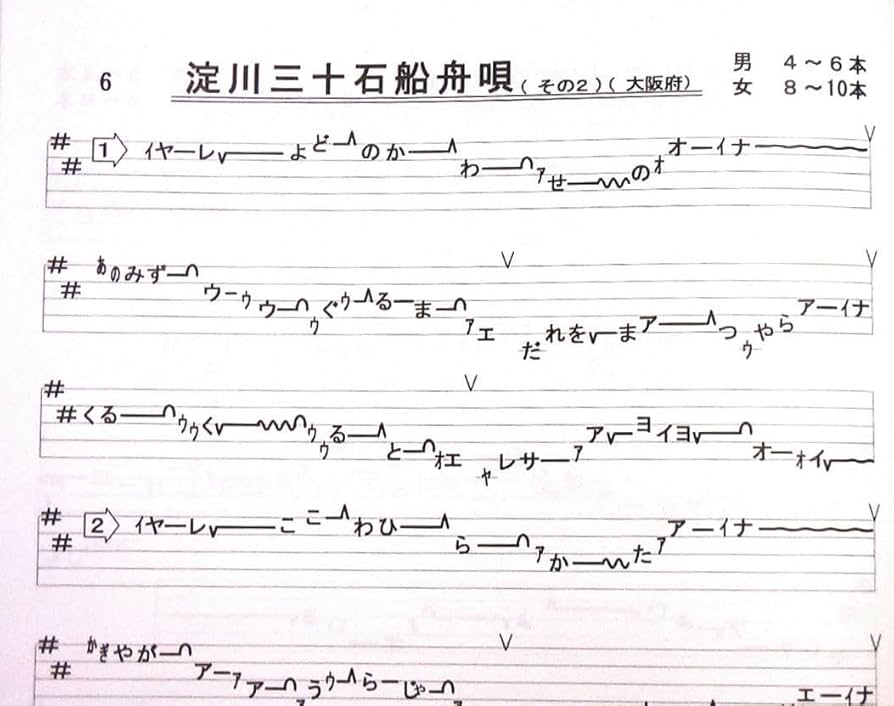 6 淀川三十石船舟唄(その2)(大阪府)
男 4～6本
女 8～10本
1 イヤーレ よど のか わ ァ せ のォ オーイナ
あのみず ウーゥ ウー ゥ ぐ ゥ る ー ま ァ エ だ れを ま ア つ ゥ やら アーイナ
くる ゥ ゥ く ゥ ゥ る と ォエ ャ レサ ァ ア ヨ イヨ オーォイ
2 イヤーレ ここ わひ ら ァ か た ァ アーイナ
かぎやが アーァ アー う ゥ らーじゃ エーイナ